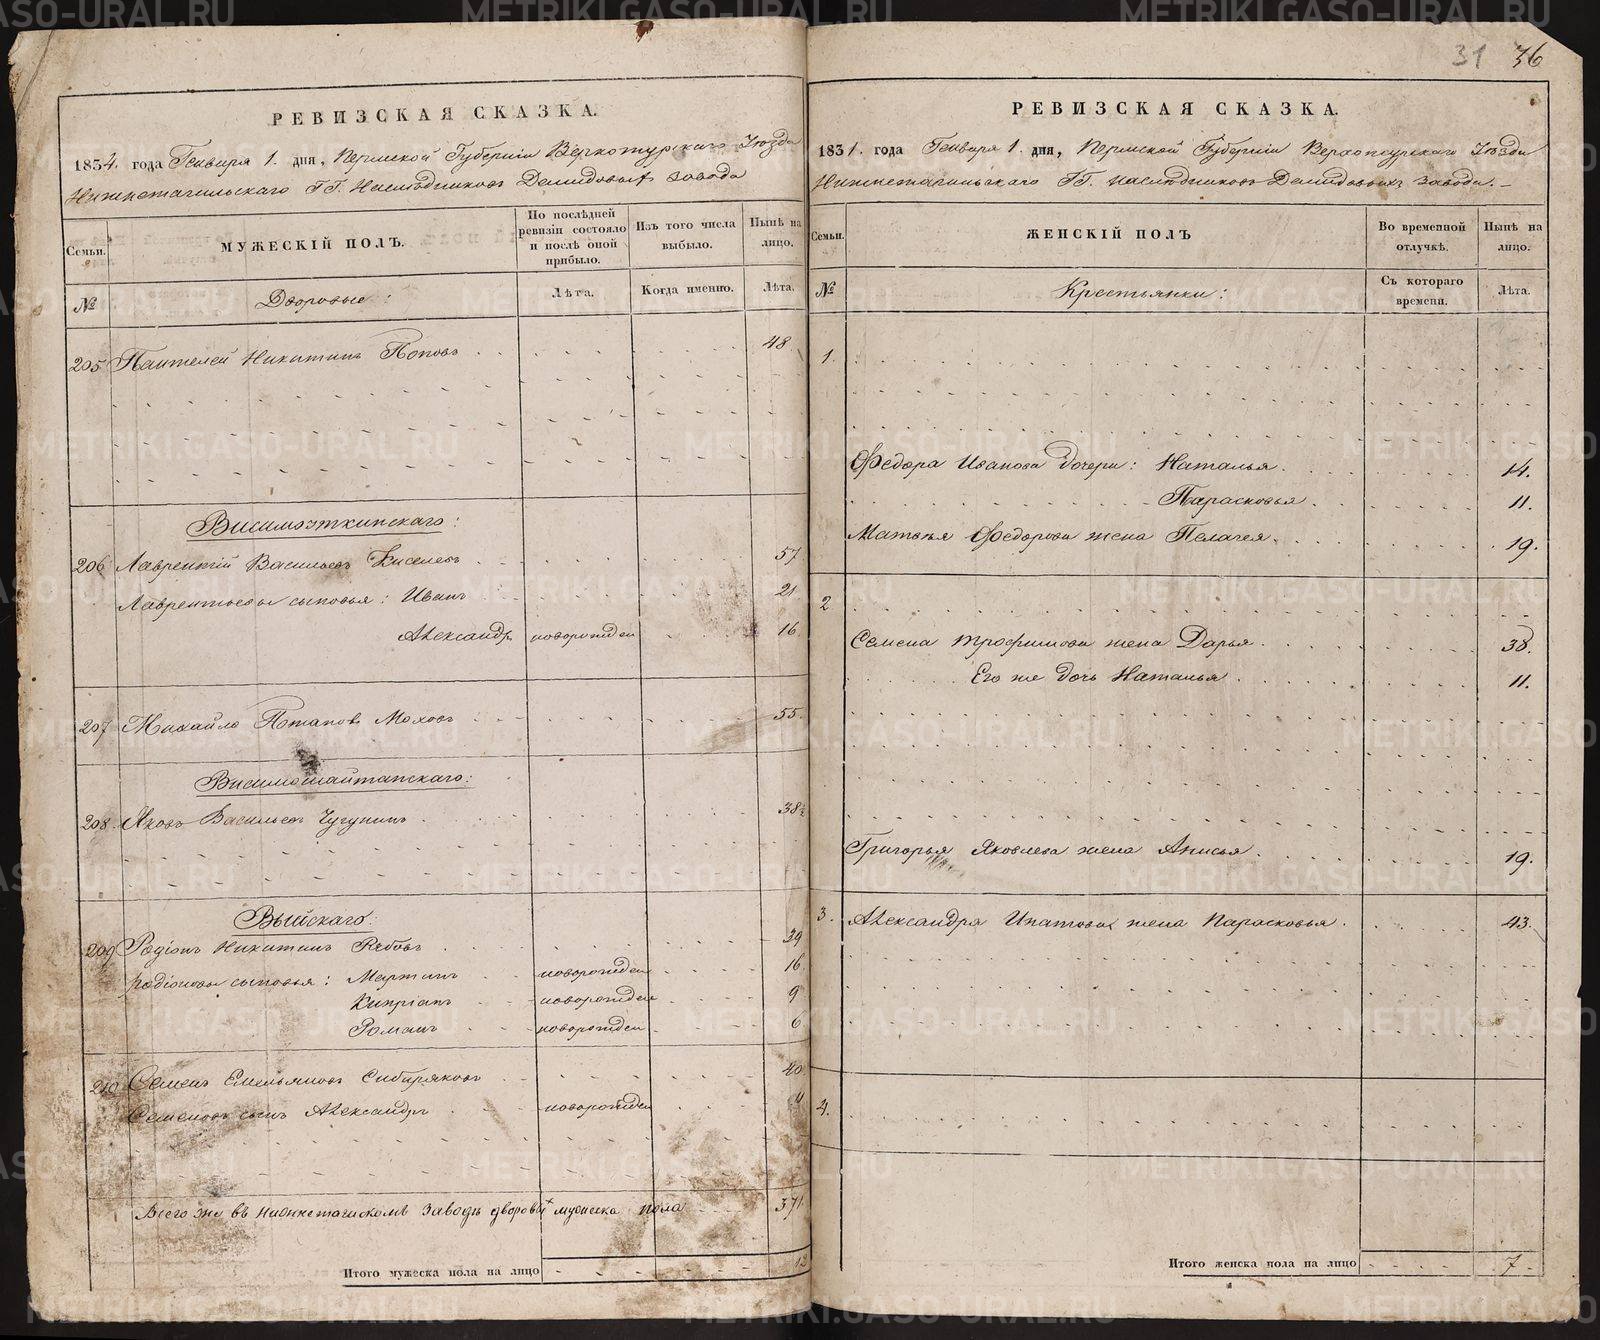 31 36
РЕВИЗСКАЯ СКАЗКА.
1834. года Генваря 1. дня, Пермской Губерніи Верхотурскаго Уѣзда
Нижнетагильскаго ГГ. Наслѣдниковъ Демидовыхъ завода
Семьи.
МУЖЕСКІЙ ПОЛЪ.
По послѣдней ревизіи состояло и послѣ оной прибыло.
Изъ того числа выбыло.
Нынѣ на лицо.
№
Дворовые:
Лѣта.
Когда именно.
Лѣта.
205 Пантелей Никитинъ Поповъ 48.
Висимоуткинскаго:
206 Лаврентій Васильевъ Киселевъ 57
Лаврентьевы сыновья: Иванъ 21
Александръ новорожден 16
207 Михайло Потаповъ Моховъ 55.
Висимошайтанскаго:
208. Яковъ Васильевъ Чугунинъ 38½
Выйскаго:
209 Родіонъ Никитинъ Рябовъ 39
Родіоновы сыновья: Мартинъ новорожден 16
Кипріанъ новорожден 9
Романъ новорожден 6
210 Семенъ Емельяновъ Сибиряковъ 40
Семеновъ сынъ Александръ новорожден 4
Всего же въ Нижнетагилскомъ заводѣ дворовых мужеска пола 371
Итого мужеска пола на лицо 12
РЕВИЗСКАЯ СКАЗКА.
1834. года Генваря 1. дня, Пермской Губерніи Верхотурскаго Уѣзда
Нижнетагильскаго ГГ. Наслѣдниковъ Демидовыхъ завода.
Семьи.
ЖЕНСКІЙ ПОЛЪ
Во временной отлучкѣ.
Нынѣ на лицо.
№
Крестьянки:
Съ котораго времени.
Лѣта.
1.
Федора Иванова дочери: Наталья 14.
Парасковья 11.
Матвѣя Федорова жена Пелагея. 19.
2
Семена Трофимова жена Дарья 38.
Его же дочь Наталья 11.
Григорья Яковлева жена Анисья 19.
3. Александра Ипатова жена Парасковья 43.
4.
Итого женска пола на лицо 7
METRIKI.GASO-URAL.RU